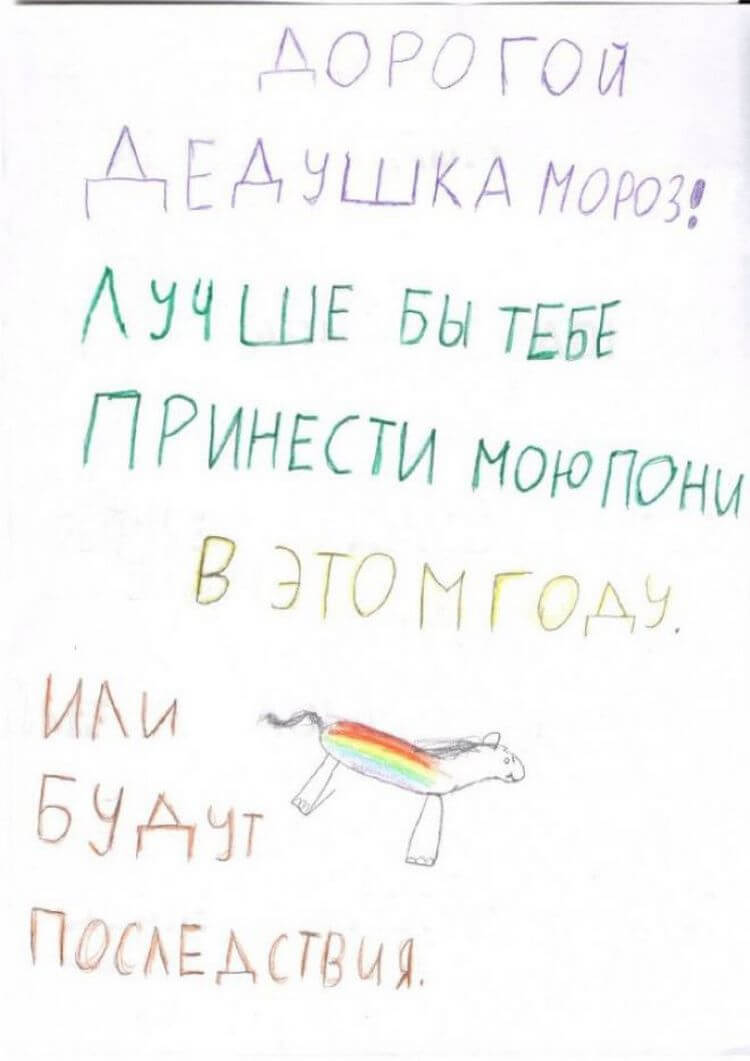 ДОРОГОЙ
ДЕДУШКА МОРОЗ!
ЛУЧШЕ БЫ ТЕБЕ
ПРИНЕСТИ МОЮ ПОНИ
В ЭТОМ ГОДУ.
ИЛИ
БУДУТ
ПОСЛЕДСТВИЯ.